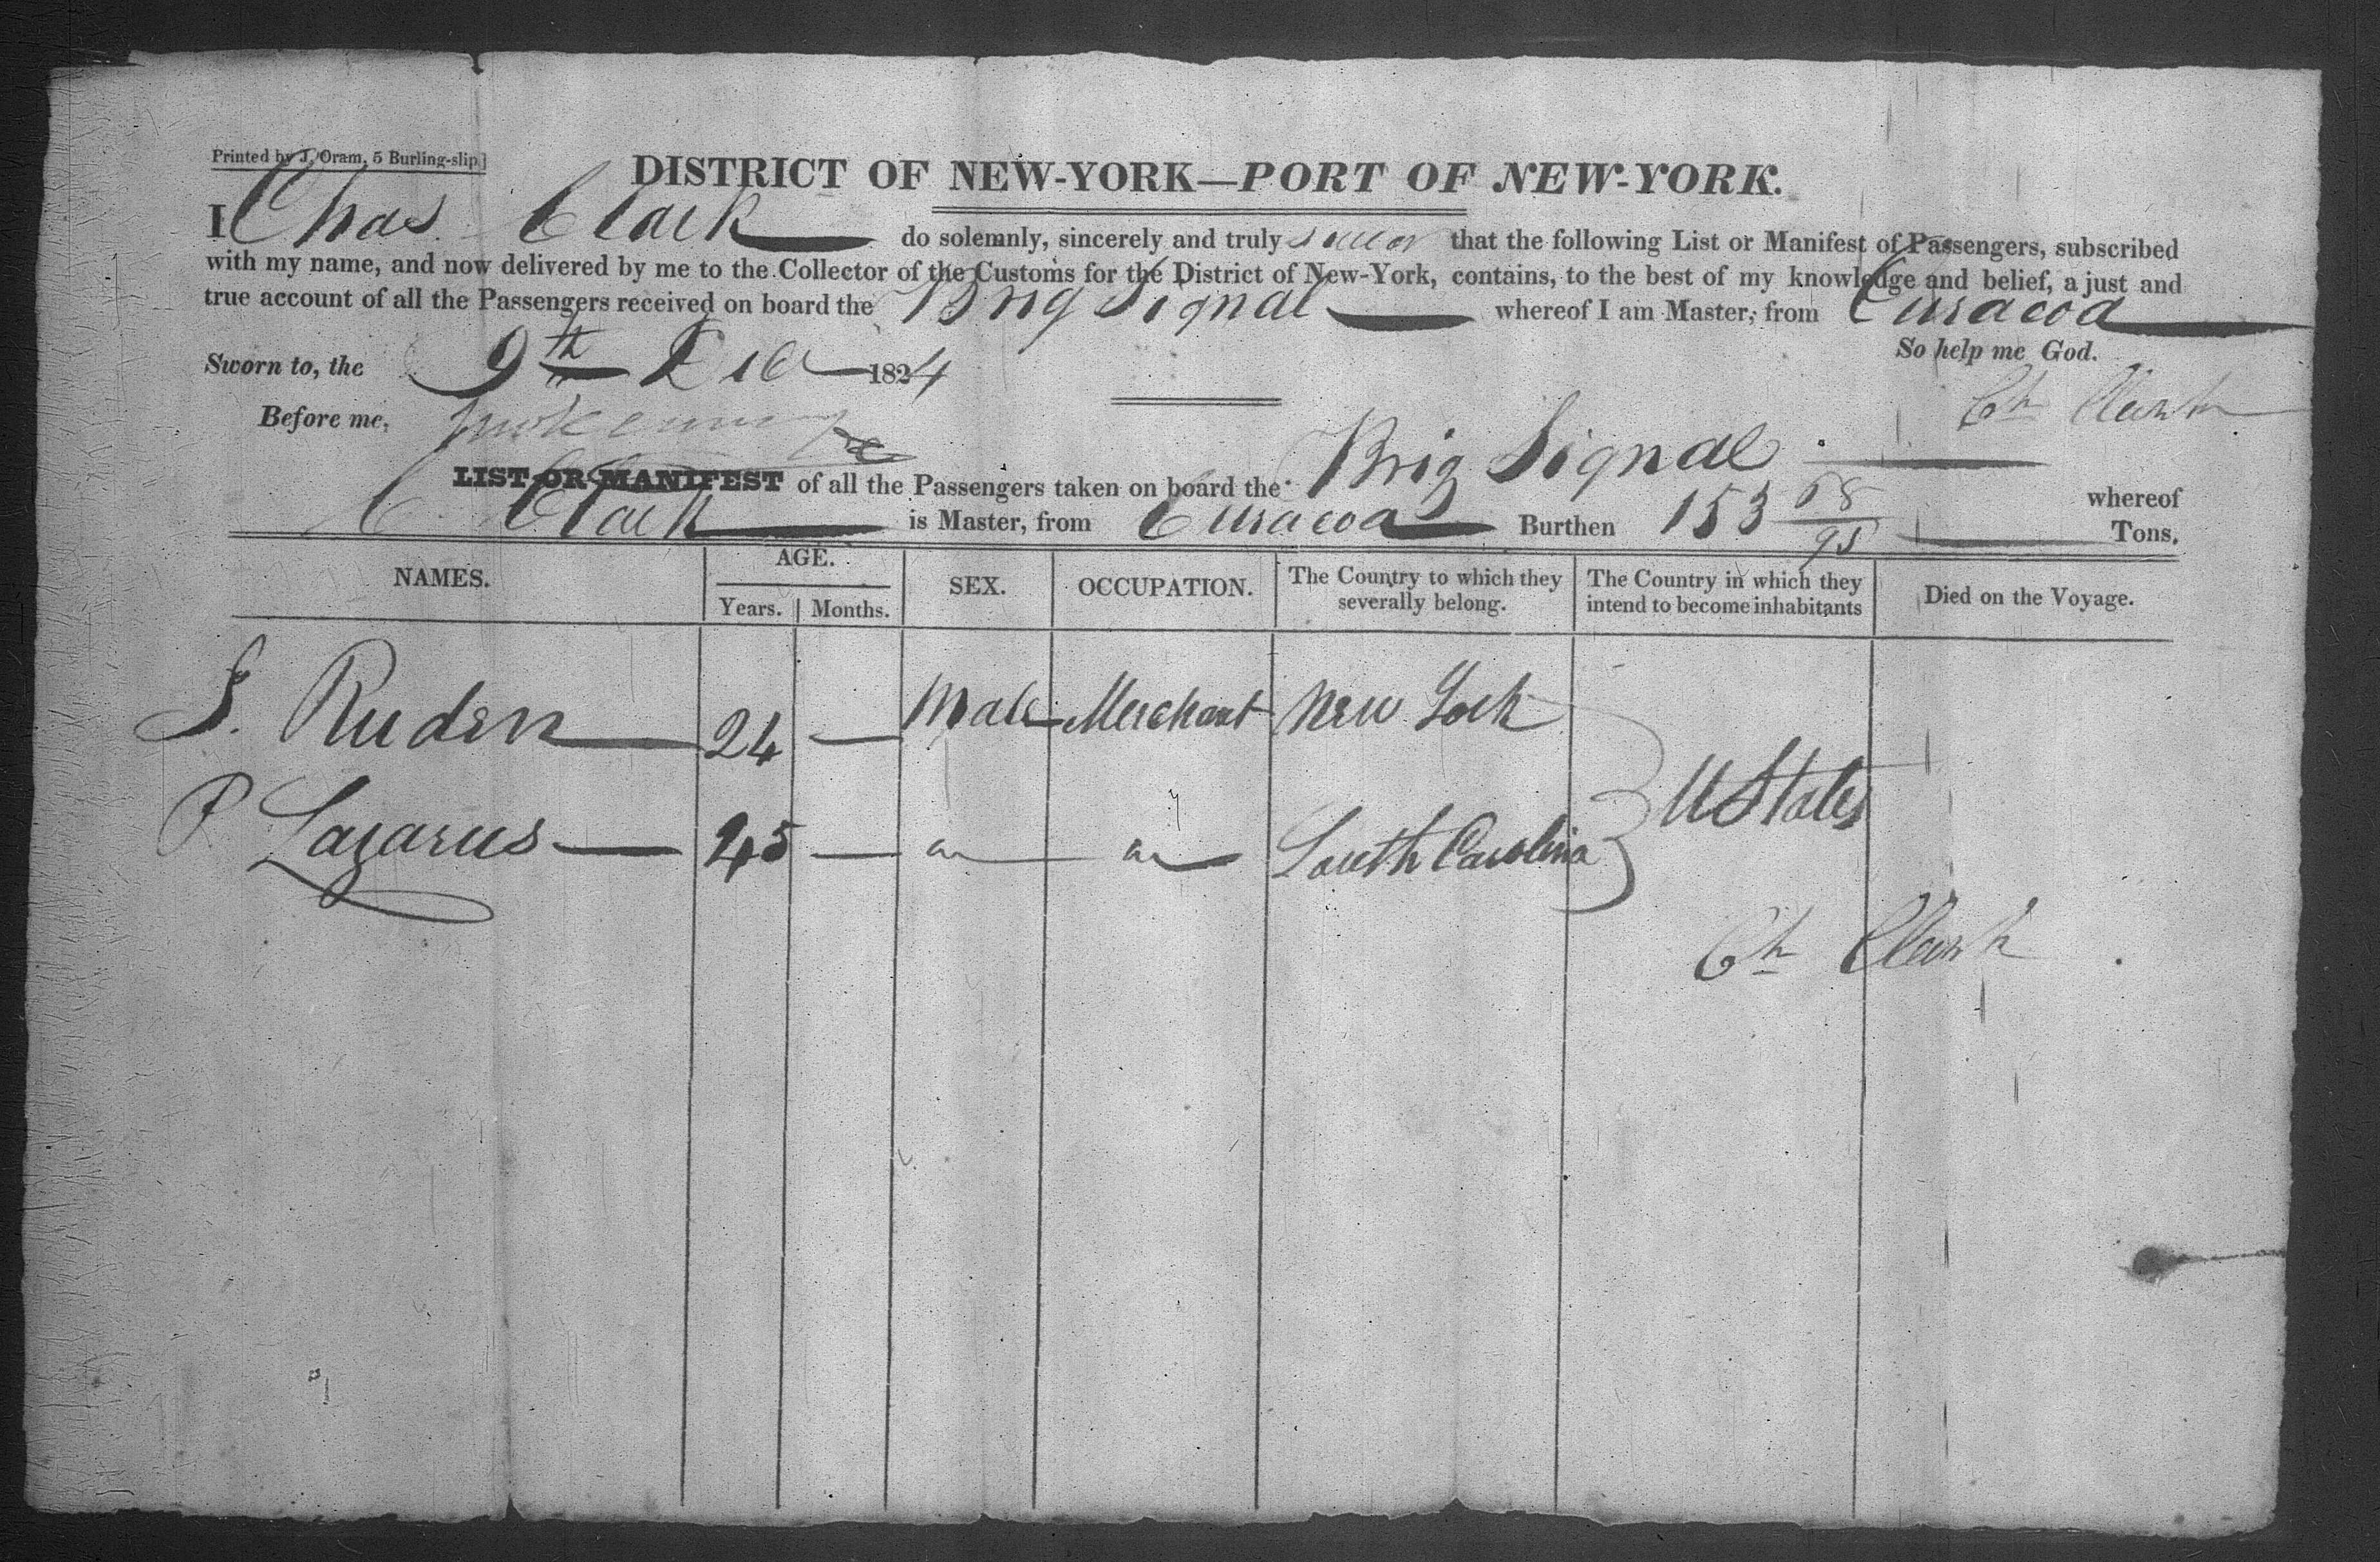 Printed by J. Oram, 5 Burling-slip.]
DISTRICT OF NEW-YORK—PORT OF NEW-YORK.
I Chas. Clark do solemnly, sincerely and truly swear that the following List or Manifest of Passengers, subscribed
with my name, and now delivered by me to the Collector of the Customs for the District of New-York, contains, to the best of my knowledge and belief, a just and
true account of all the Passengers received on board the Brig Signal whereof I am Master, from Curacoa
So help me God.
Sworn to, the 9th Dec 1824
Ch Clark
Before me,
LIST OR MANIFEST of all the Passengers taken on board the Brig Signal whereof
C. Clark is Master, from Curacoa Burthen 153 68/95 Tons.
NAMES. AGE. Years. Months. SEX. OCCUPATION. The Country to which they severally belong. The Country in which they intend to become inhabitants Died on the Voyage.
J. Ruden 24 — Male Merchant New York
U States
P Lazarus 45 — " " South Carolina
Ch Clark